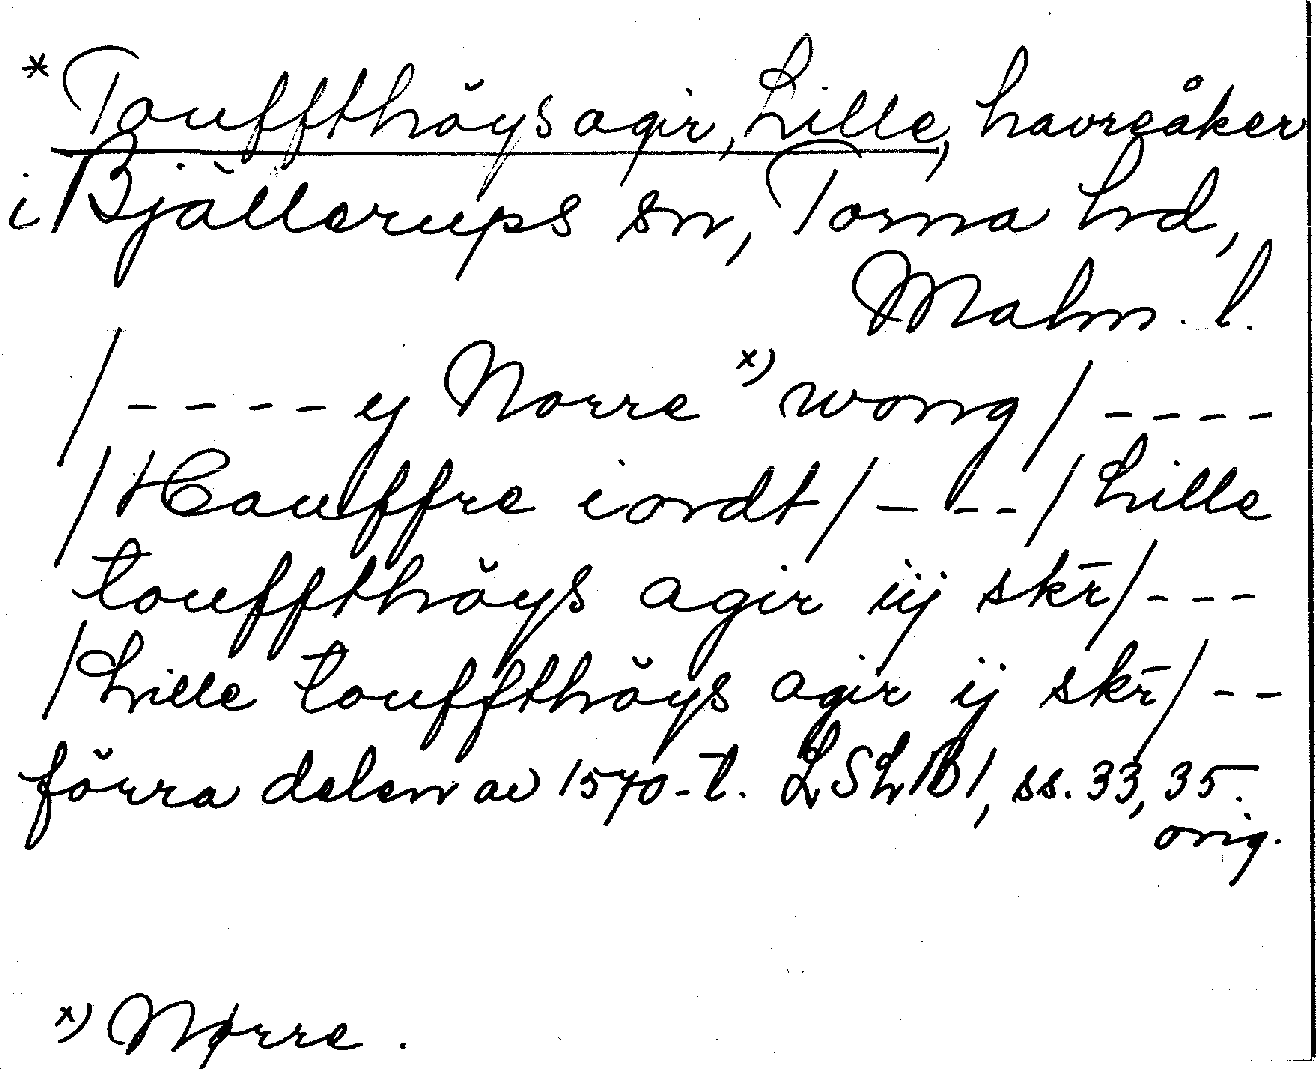 * Touffthöys agir, Lille, havreåker
i Bjällerups sn, Torna hd,
Malm. l.
/---- y Norre x) wong/ ----
/Hauffre iordt/ --- /Lille
touffthöys agir iij skr̄/ ---
/Lille touffthöys agir ij skr̄/ --
förra delen av 1570-t. LSLB1, ss. 33, 35.
orig.
x) Nørre.